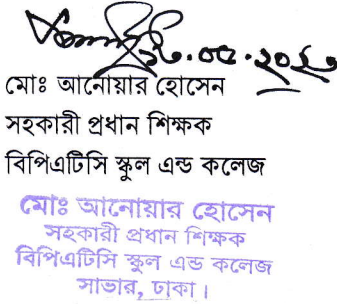 মোঃ আনোয়ার হোসেন
সহকারী প্রধান শিক্ষক
বিপিএটিসি স্কুল এন্ড কলেজ
মোঃ আনোয়ার হোসেন
সহকারী প্রধান শিক্ষক
বিপিএটিসি স্কুল এন্ড কলেজ
সাভার, ঢাকা।